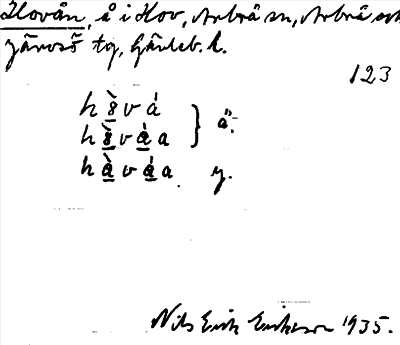 Hovån, å i Hov, Arbrå sn, Arbrå och
Järvsö tg, Gävleb. l.
123
h ȣ̀ v á
h ȣ̀ v á a } ä.
h à v á a y.
Nils Erik Eriksson 1935.